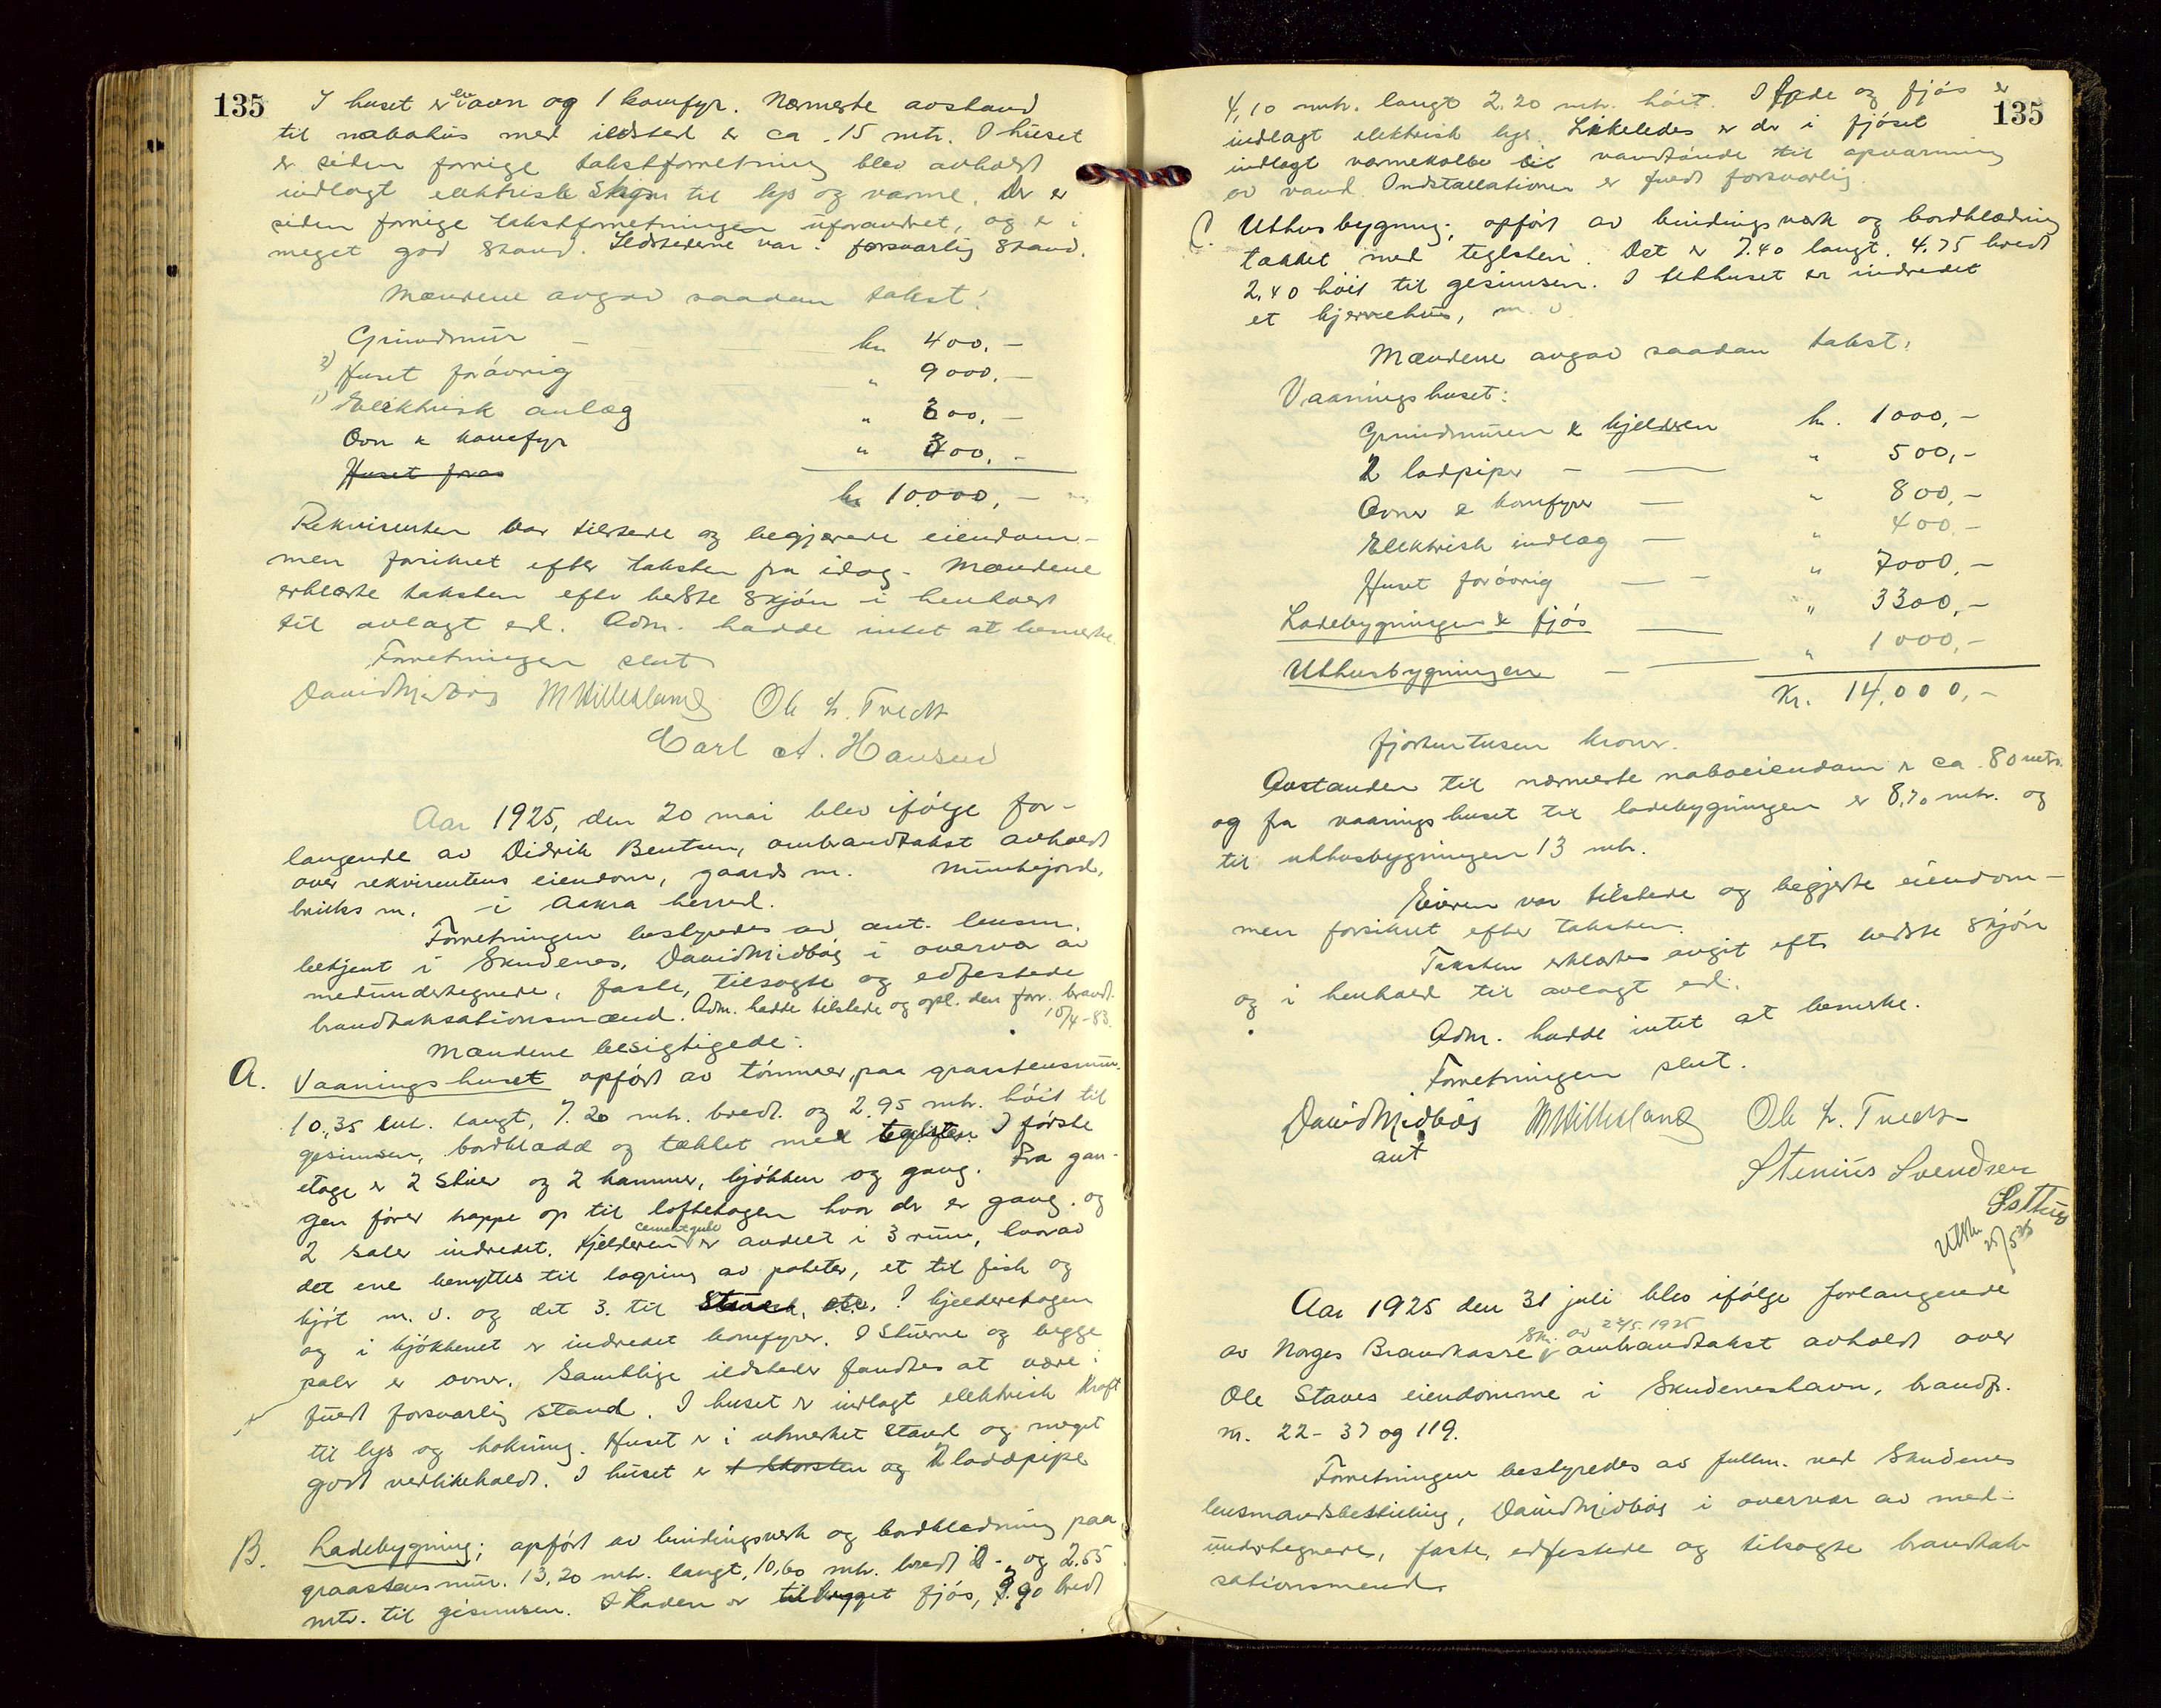 135
I huset er en ovn og 1 komfyr. Nærmeste avstand
til nabohus med ildsted er ca. 15 mtr. I huset
er siden forrige takstforretning blev avholdt
indlagt elektrisk strøm til lys og varme. Der er
siden forrige takstforretningen uforandret, og er i
meget god stand. Ildstederne var i forsvarlig stand.
Mændene avgav saadan takst:
Grundmur – kr 400,–
2) Huset forøvrig " 9000,–
1) Elektrisk anlæg " 300,–
Ovn & komfyr " 300,–
Huset forø
kr 10000,–
Rekvirenten var tilstede og begjærede eiendom-
men forsikret efter taksten fra idag. Mændene
erklærte taksten efter bedste skjøn i henhold
til avlagt ed. Adm. hadde intet at bemerke.
Forretningen slut
David Midbøs M Hillesland Ole L. Tvedt
Carl A. Hansen
Aar 1925, den 20 mai blev ifølge for-
langende av Didrik Bentsen, ombrandtakst avholdt
over rekvirentens eiendom, gaards nr. Munkejord,
bruks nr. i Aakra herred.
Forretningen bestyredes av aut. lensm.
betjent i Skudenes, David Midbøs i overvær av
medundertegnede, faste, tilsagte og edfestede
brandtaksationsmænd. Adm. hadde tilstede og opl. den forr. brandt.
10/4-83.
Mændene besigtigede:
A. Vaaningshuset opført av tømmer, paa graastensmur.
10,35 mtr. langt, 7.20 mtr. bredt og 2.95 mtr. høit til
gesimsen, bordklædd og tækket med teglsten. I første
etage er 2 stuer og 2 kammer, kjøkken og gang. Fra gan-
gen fører trappe op til loftetagen hvor der er gang og
2 saler indredet. Kjelderen cementgulv er avdelt i 3 rum, hvorav
det ene benyttes til lagring av poteter, et til fisk og
kjøt m.v. og det 3. til etc. I kjelderetagen
og i kjøkkenet er indredet komfyrer. I stuerne og begge
saler er ovner. Samtlige ildsteder fandtes at være i
fuldt forsvarlig stand. I huset er indlagt elektrisk kraft
til lys og kokning. Huset er i utmerket stand og meget
godt vedlikeholdt. I huset er 1 skorsten og 2 lodpipe
B. Ladebygning; opført av bindingsverk og bordklædning paa
graastensmur. 13,20 mtr. langt, 10,60 mtr. bredt og 2.65
mtr. til gesimsen. I laden er tilbygget fjøs, 9.90 bredt
135
4,10 mtr. langt 2.20 mtr. høit. I lade og fjøs er
indlagt elektrisk lys. Likeledes er der i fjøset
indlagt varmekolbe til vandtønde til opvarming
av vand. Indstallationen er fuldt forsvarlig.
C. Uthusbygning; opført av bindingsverk og bordklædning
tækket med teglsten. Det er 7.40 langt, 4.75 bredt
2.40 høit til gesimsen. I uthuset er indredet
et kjerrehus, m.v.
Mændene avgav saadan takst:
Vaaningshuset:
Grundmuren & kjelderen kr. 1000,–
2 lodpiper – " 500,–
Ovner & komfyrer – " 800,–
Elektrisk indlæg – " 400,–
Huset forøvrig – – " 7000,–
Ladebygningen & fjøs – " 3300,–
Uthusbygningen – " 1000,–
Kr. 14.000,–
fjortentusen kroner.
Avstanden til nærmeste naboeiendom er ca. 80 mtr.
og fra vaaningshuset til ladebygningen er 8,70 mtr. og
til uthusbygningen 13 mtr.
Eieren var tilstede og begjærte eiendom-
men forsikret efter taksten.
Taksten erklærtes avgit efter bedste skjøn
og i henhold til avlagt ed.
Adm. hadde intet at bemerke.
Forretningen slut.
David Midbøs M Hillesland Ole L. Tvedt
aut
Stenius Svendsen
Utskr. 25/5 25
Aar 1925 den 31 juli blev ifølge forlangende
av Norges Brandkasse skr. av 22/5. 1925 ombrandtakst avholdt over
Ole Staves eiendomme i Skudeneshavn, brandf.
nr. 22 - 37 og 119.
Forretningen bestyredes av fullm. ved Skudenes
lensmandsbestilling, David Midbøs i overvær av med-
undertegnede, faste, edfestede og tilsagte brandtak-
sationsmænd.